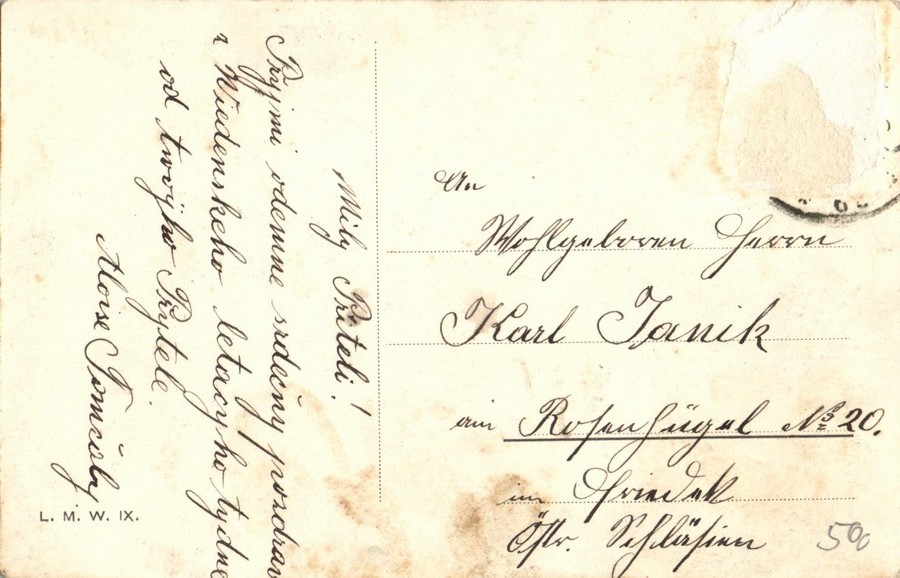 Milý Příteli!
Przyjmi odemne srdečny pozdrav
z Wiedenskeho letacyho tydne
od twojho Przytele.
Aloise
L. M. W. IX.
An
Wohlgeboren Herrn
Karl Janik
am Rosenhügel No 20.
in Friedek
Östr. Schläsien
50